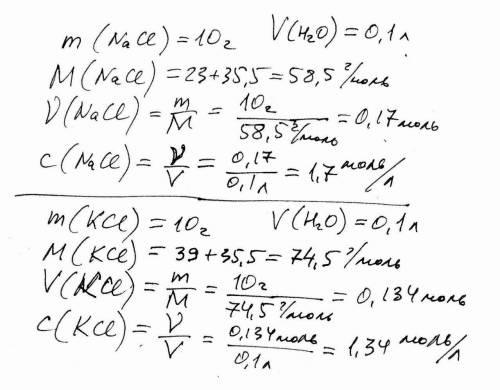 m (NaCl) = 10г V(H₂O) = 0,1л
M(NaCl) = 23+35,5 = 58,5 г/моль
ν(NaCl) = m/M = 10г/58,5 г/моль = 0,17 моль
c(NaCl) = ν/V = 0,17/0,1л = 1,7 моль/л
m(KCl) = 10г V(H₂O) = 0,1л
M(KCl) = 39+35,5 = 74,5 г/моль
ν(KCl) = m/M = 10г/74,5 г/моль = 0,134 моль
c(KCl) = ν/V = 0,134 моль/0,1л = 1,34 моль/л